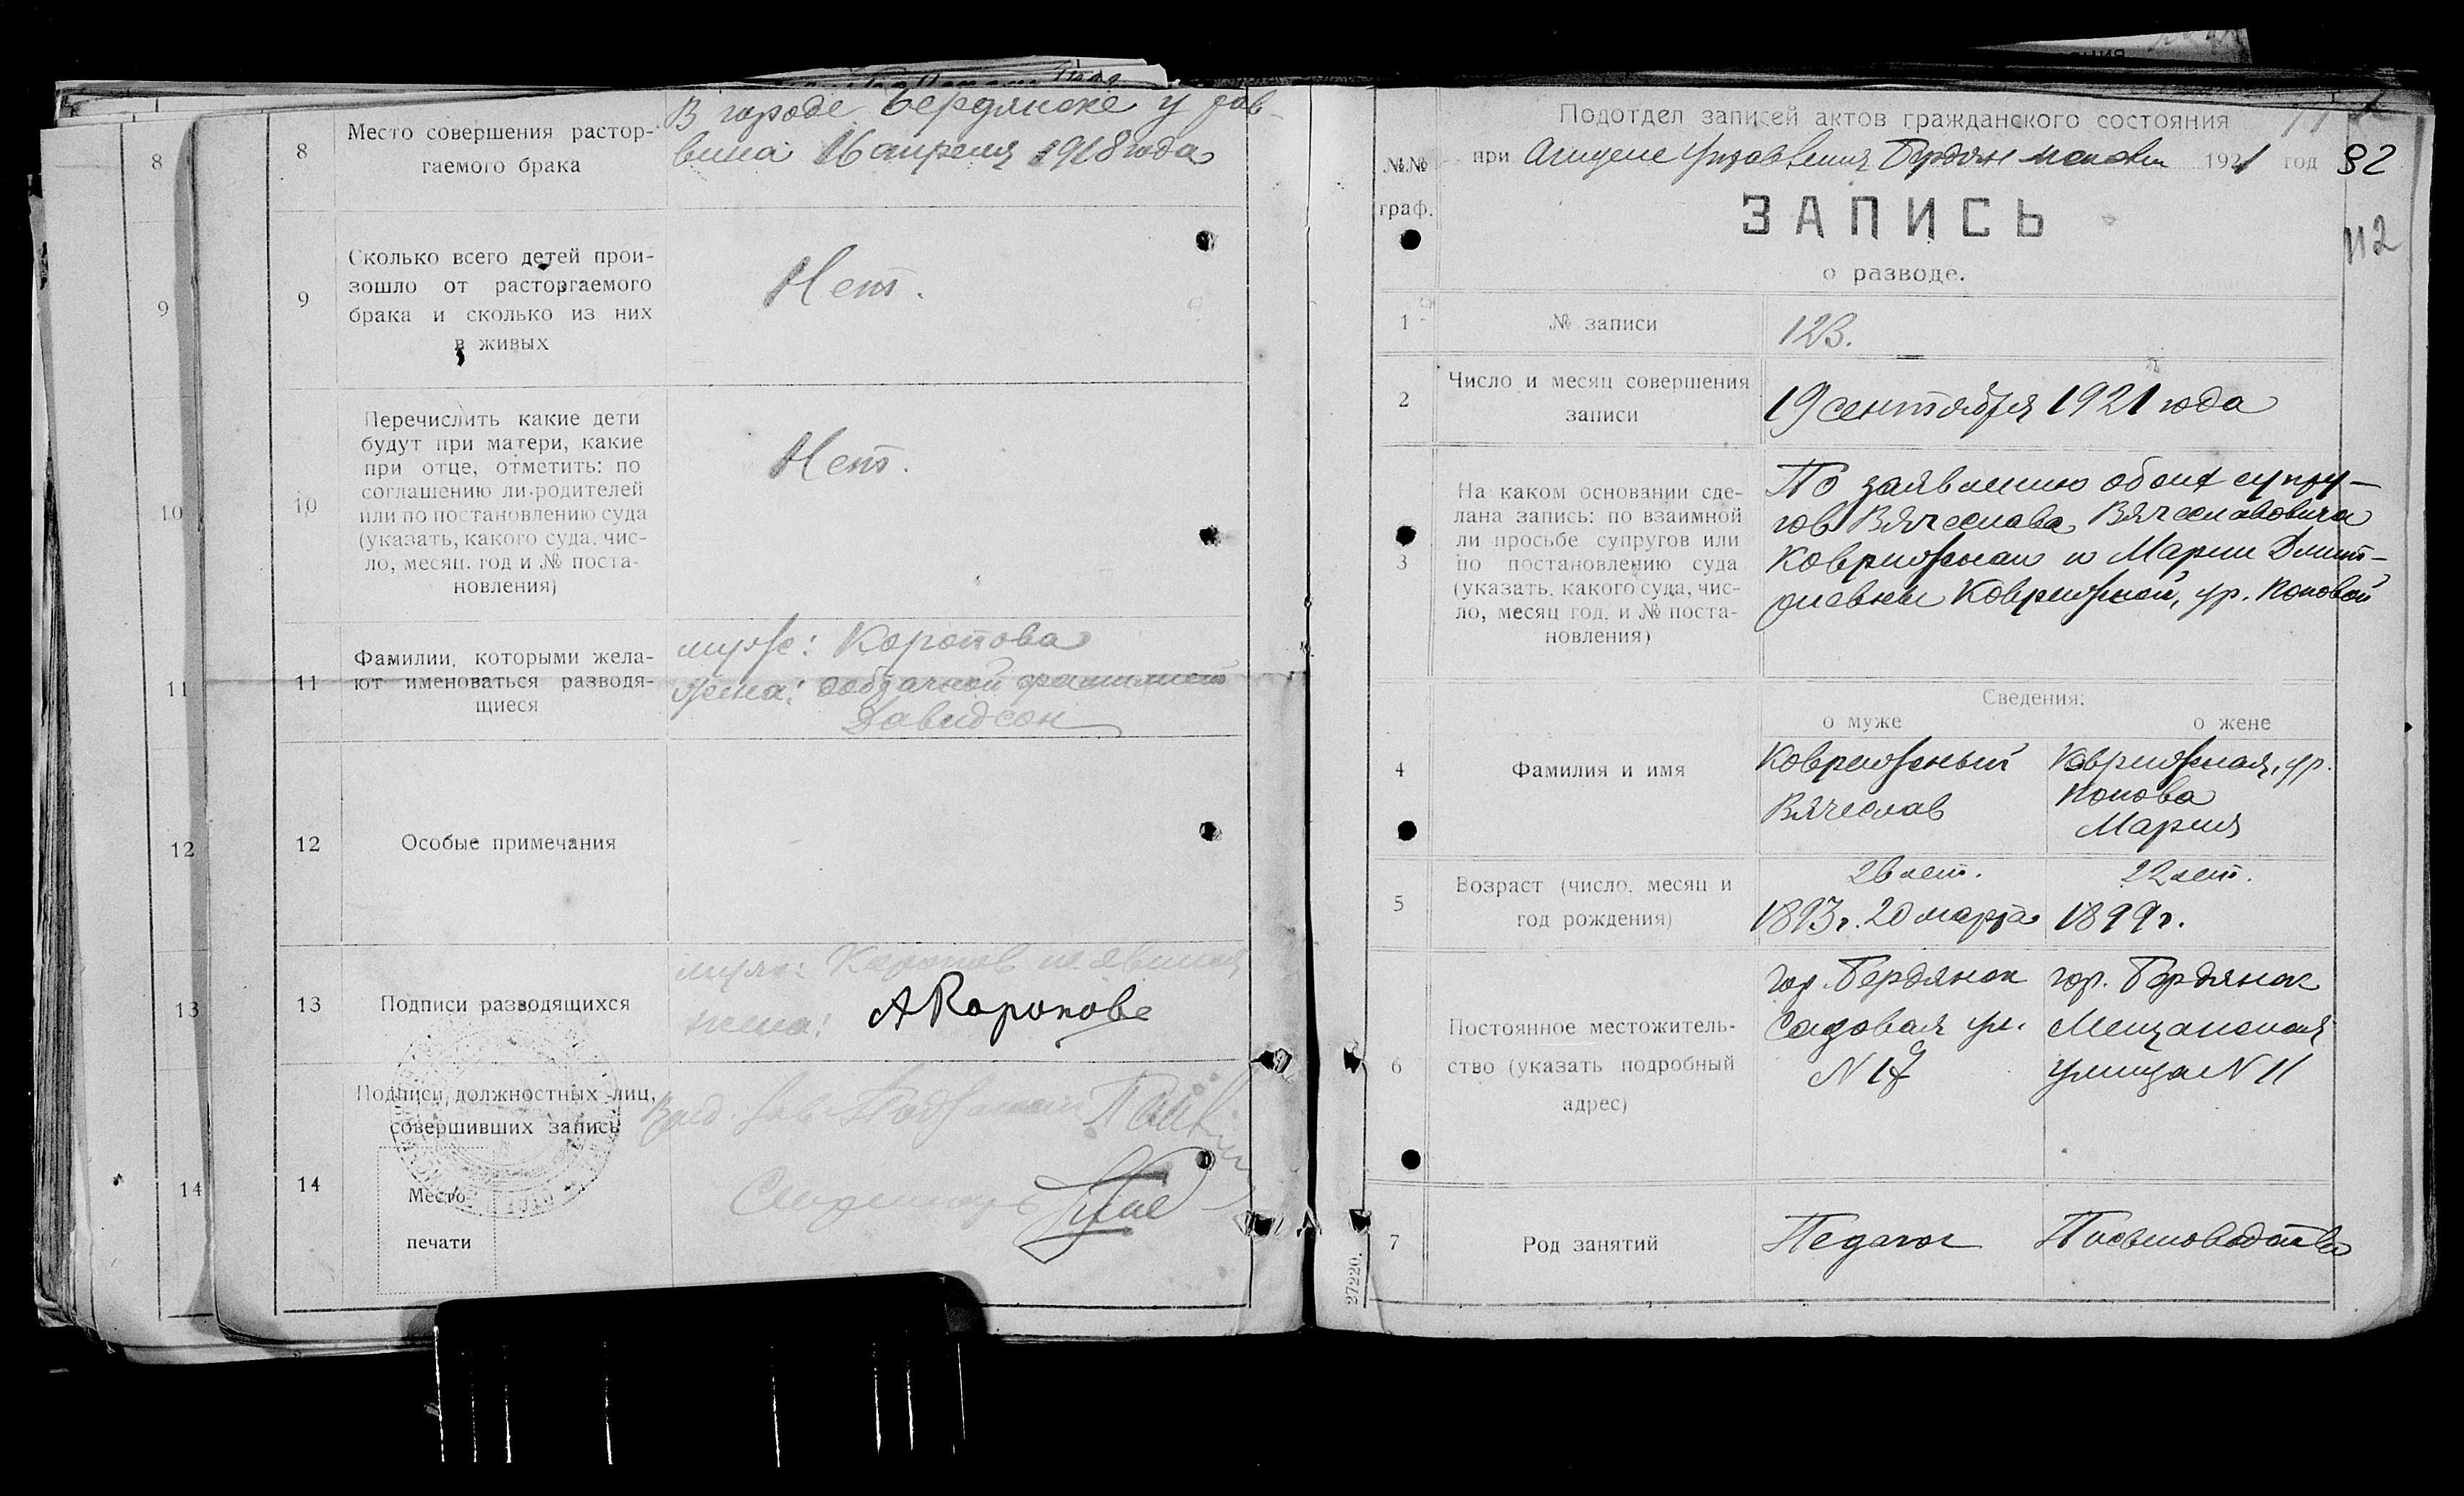 8
9
10
11
12
13
14
8
Место совершения растор-
гаемого брака
В городе Бердянске у рав-
вина 16 апреля 1918 года
9
Сколько всего детей прои-
зошло от расторгаемого
брака и сколько из них
в живых
Нет.
10
Перечислить какие дети
будут при матери, какие
при отце, отметить: по
соглашению ли родителей
или по постановлению суда
(указать, какого суда, чис-
ло, месяц, год и № поста-
новления)
Нет.
11
Фамилии, которыми жела-
ют именоваться разводя-
щиеся
муж: Коропова
жена: добрачной фамилией
Давидсон
12
Особые примечания
13
Подписи разводящихся
муж: Коропов не явился
жена: АКоропова
14
Подписи должностных лиц,
совершивших запись
Место
печати
Секретарь
27220.
Подотдел записей актов гражданского состояния
№№
граф.
при Отделе Управления Бердян 1921 год
32
112
ЗАПИСЬ
о разводе.
1
№ записи
123.
2
Число и месяц совершения
записи
19 сентября 1921 года
3
На каком основании сде-
лана запись: по взаимной
ли просьбе супругов или
по постановлению суда
(указать, какого суда, чис-
ло, месяц год, и № поста-
новления)
По заявлению обоих супру-
гов Вячеслава Вячеславовича
Коврижных и Марии Дмит-
риевны Коврижной, ур. Поповой
Сведения:
о муже
о жене
4
Фамилия и имя
Коврижный
Вячеслав
Коврижная, ур.
Попова
Мария
5
Возраст (число, месяц и
год рождения)
26 лет.
1893 г. 20 марта
22 лет.
1899 г.
6
Постоянное местожитель-
ство (указать подробный
адрес)
гор. Бердянск
Садовая ул.
N 17
гор. Бердянск
Мещанская
улица N 11
7
Род занятий
Педагог
Письмоводство